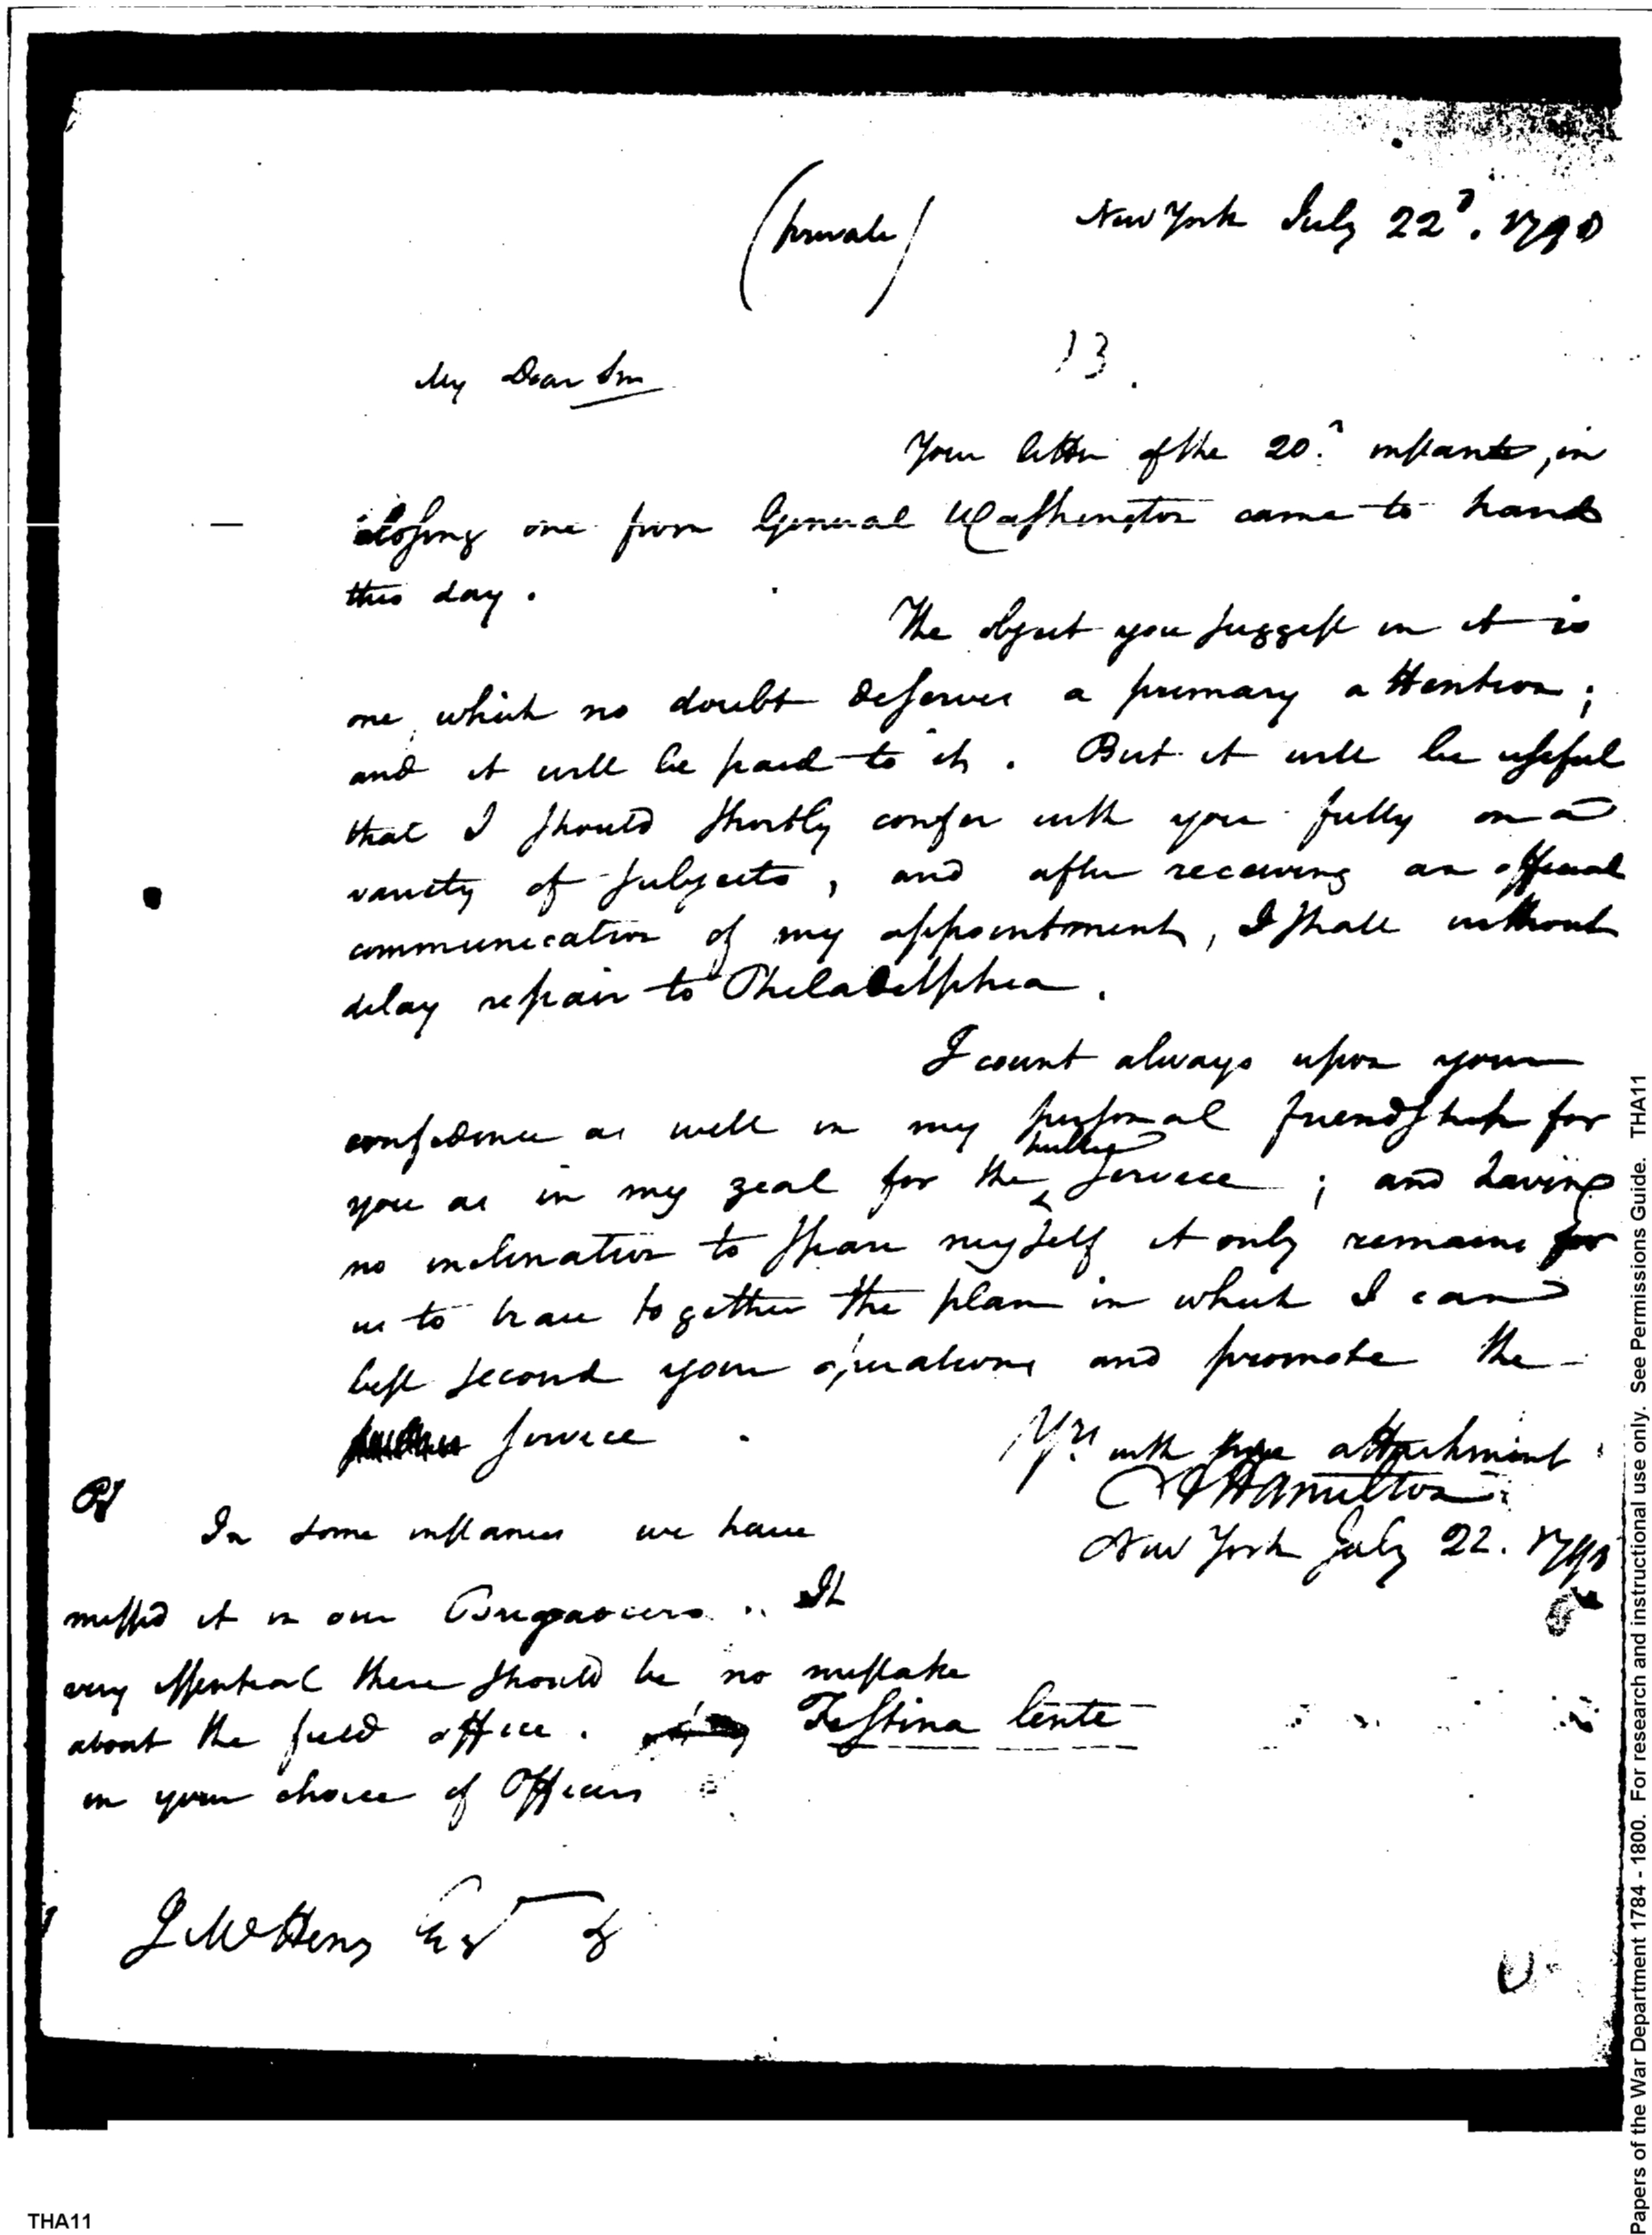 (private) New York July 22d. 1798
13.
My Dear Sir
Your letter of the 20th. instant, in
closing one from General Washington came to hand
this day.
The object you suggest in it is
one which no doubt deserves a primary attention;
and it will be paid to it. But it will be useful
that I should shortly confer with you fully on a
variety of subjects, and after receiving an official
communication of my appointment, I shall without
delay repair to Philadelphia.
I count always upon your
confidence as well in my personal friendship for
you as in my zeal for the public service; and having
no inclination to spare myself it only remains for
us to trace together the plan in which I can
best second your operations and promote the
service.
Yrs. with true attachment
A Hamilton
New York July 22. 1798
PS
In some instances we have
missed it in our Brigadiers. It
very essential there should be no mistake
about the field office. Festina lente
in your choice of Officers
J McHenry Esqr &
THA11
Papers of the War Department 1784 - 1800. For research and instructional use only. See Permissions Guide. THA11